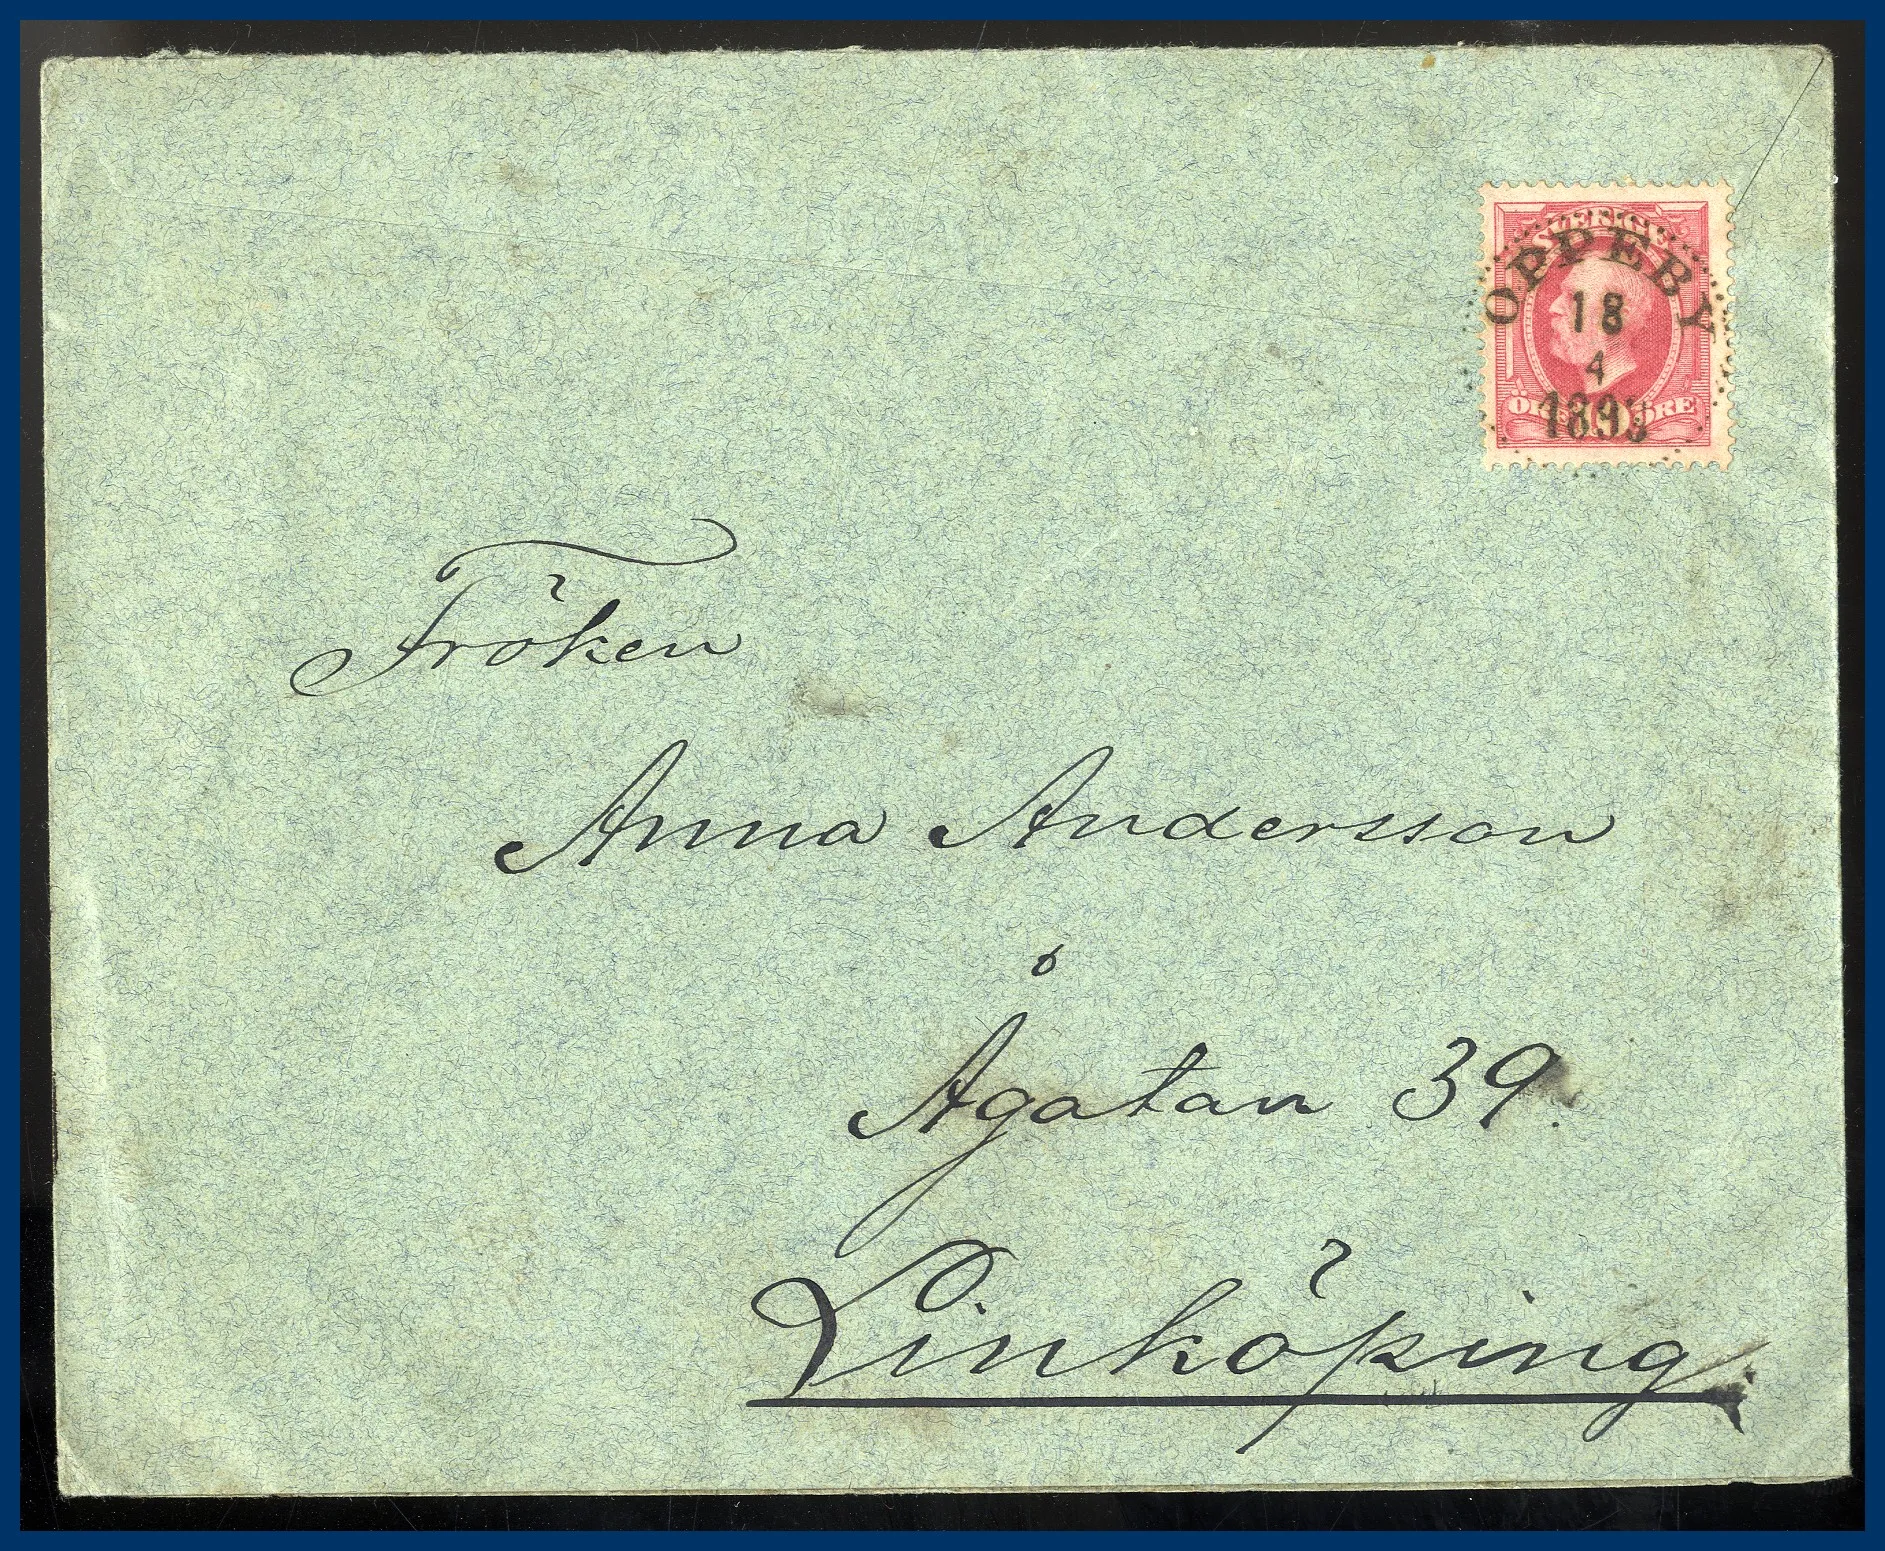 SVERIGE
OPPEBY
18
4
1893
ÖRE 10 ÖRE
Fröken
Anna Andersson
Ågatan 39.
Linköping.